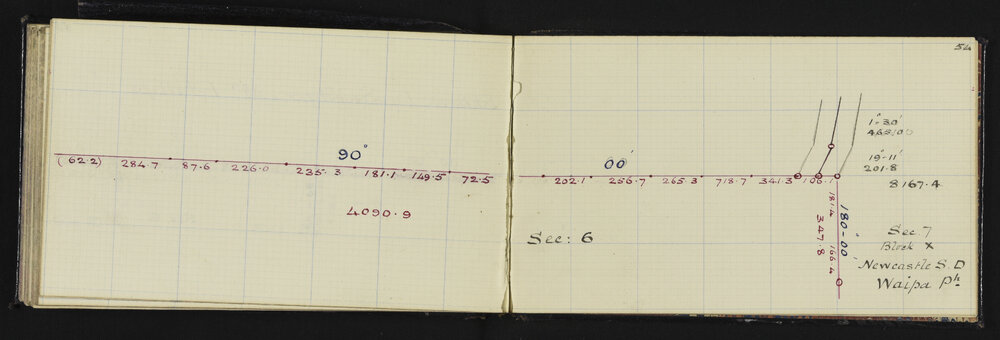 54
90°
00'
(62.2) 284.7 87.6 226.0 235.3 181.1 149.5 72.5
202.1 256.7 265.3 718.7 341.3 106.1
4090.9
1°-30'
19°-11'
201.8
8167.4
181.4
166.4
347.8
180-00'
Sec: 6
Sec 7
Block X
Newcastle S.D
Waipa Ph